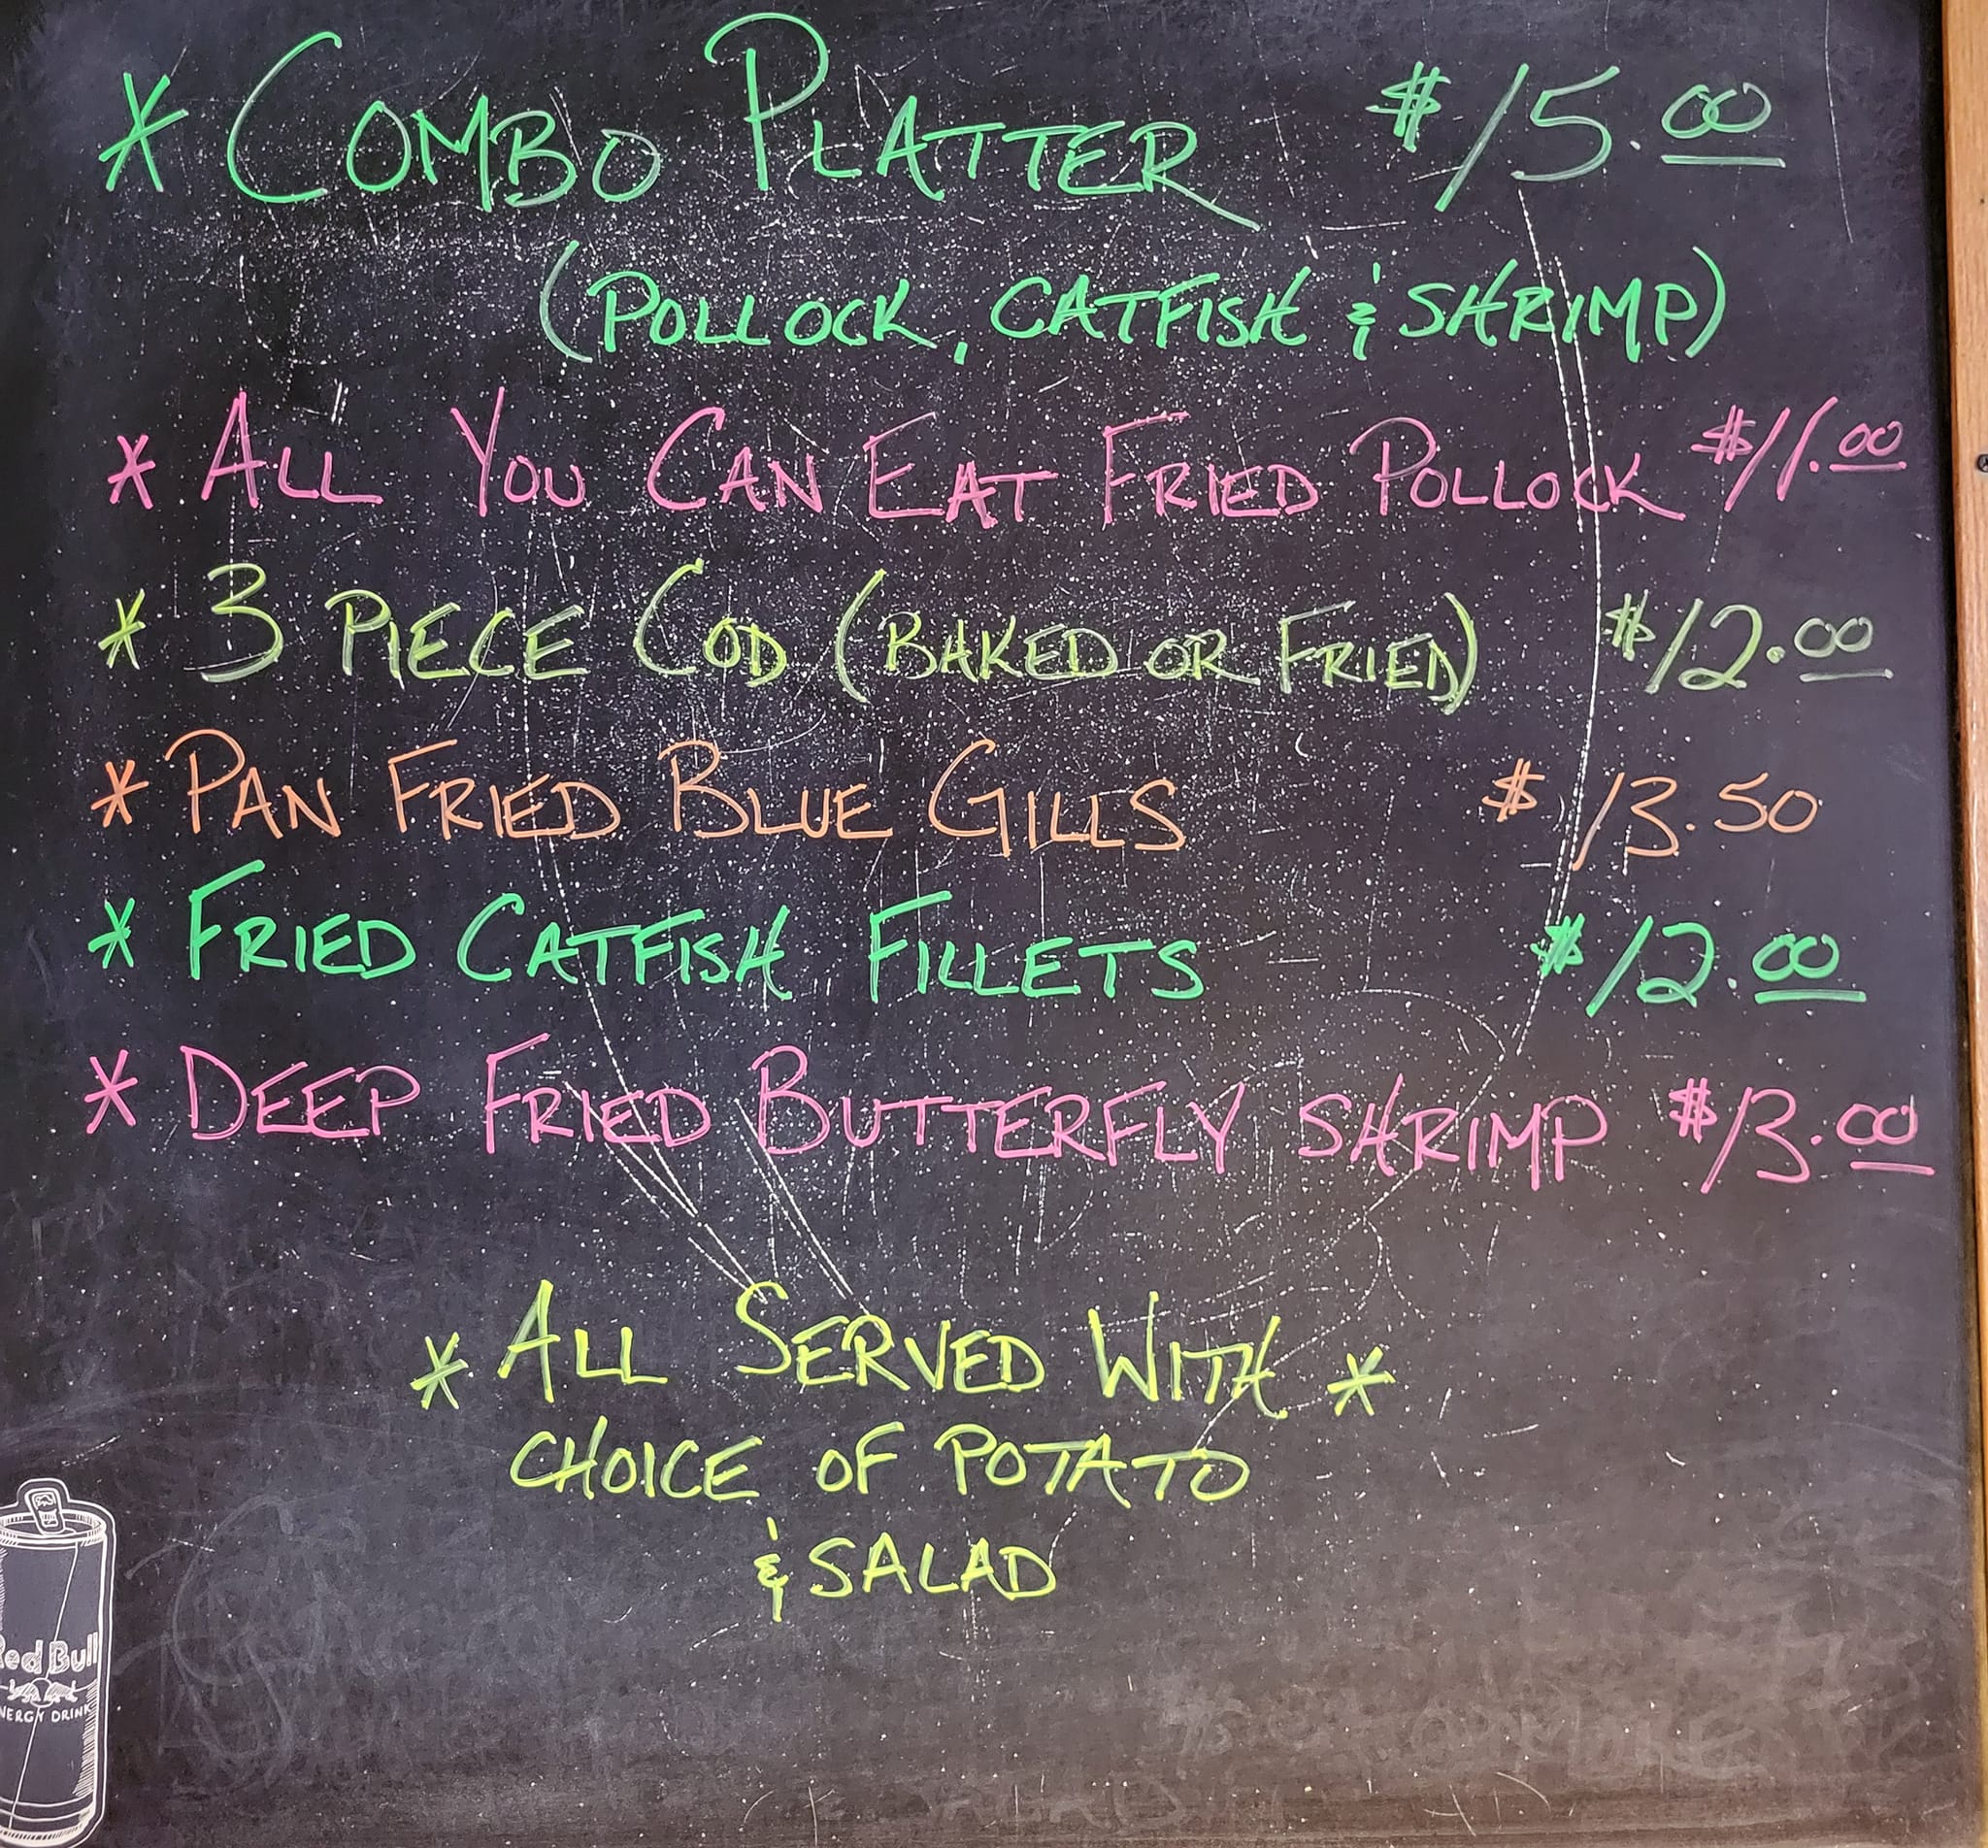 * COMBO PLATTER $15.00
(POLLOCK, CATFISH & SHRIMP)
* ALL YOU CAN EAT FRIED POLLOCK $11.00
* 3 PIECE COD (BAKED OR FRIED) $12.00
* PAN FRIED BLUE GILLS $13.50
* FRIED CATFISH FILLETS $12.00
* DEEP FRIED BUTTERFLY SHRIMP $13.00
* ALL SERVED WITH *
CHOICE OF POTATO
& SALAD
Red Bull
ENERGY DRINK